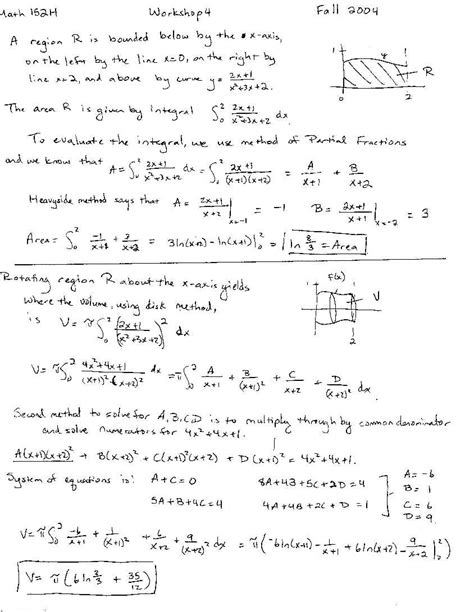 Math 152H Workshop 4 Fall 2004
A region R is bounded below by the x-axis,
on the left by the line x=0, on the right by
line x=2, and above by curve y = (2x+1)/(x²+3x+2).
1 1 R 0 2
The area R is given by integral ∫₀² (2x+1)/(x²+3x+2) dx.
To evaluate the integral, we use method of Partial Fractions
and we know that A = ∫₀² (2x+1)/(x²+3x+2) dx = ∫₀² (2x+1)/((x+1)(x+2)) = A/(x+1) + B/(x+2)
Heavyside method says that A = (2x+1)/(x+2) |ₓ₌₋₁ = -1 B = (2x+1)/(x+1) |ₓ₌₋₂ = 3
Area = ∫₀² -1/(x+1) + 3/(x+2) = 3ln(x+2) - ln(x+1)|₀² = ln 8/3 = Area
Rotating region R about the x-axis yields
where the volume, using disk method,
is V = π∫₀² ((2x+1)/(x²+3x+2))² dx
f(x) 1 1 V 2
V = π∫₀² (4x²+4x+1)/((x+1)²(x+2)²) dx = π∫₀² A/(x+1) + B/(x+1)² + C/(x+2) + D/(x+2)² dx.
Second method to solve for A,B,C,D is to multiply through by common denominator
and solve numerators for 4x²+4x+1.
A(x+1)(x+2)² + B(x+2)² + C(x+1)²(x+2) + D(x+1)² = 4x²+4x+1.
System of equations is: A+C=0 8A+4B+5C+2D=4
5A+B+4C=4 4A+4B+2C+D=1
A=-6
B=1
C=6
D=9
V = π∫₀² -6/(x+1) + 1/(x+1)² + 6/(x+2) + 9/(x+2)² dx = π(-6ln(x+1) - 1/(x+1) + 6ln(x+2) - 9/(x+2)|
V = π(6ln 2/3 + 35/12)